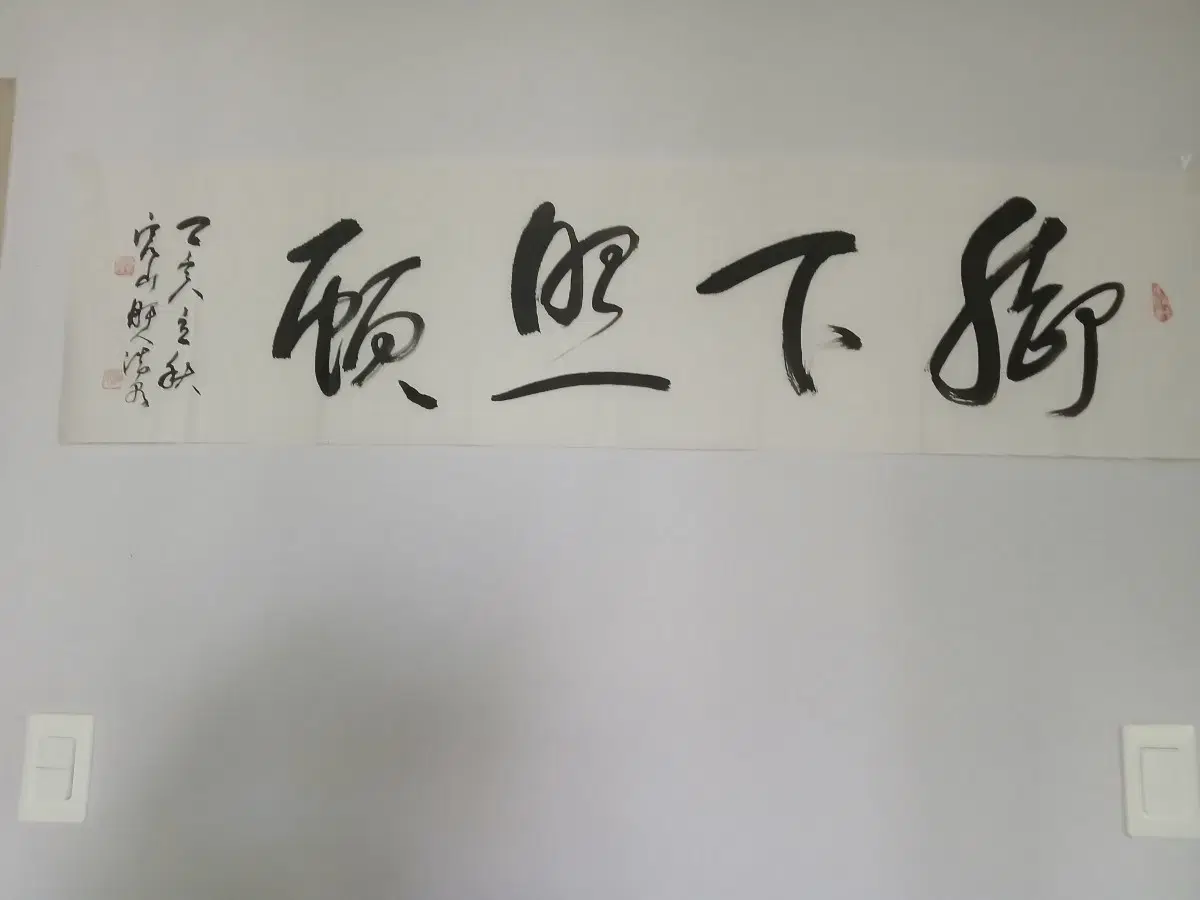 脚下照顧
丁亥立秋
山人